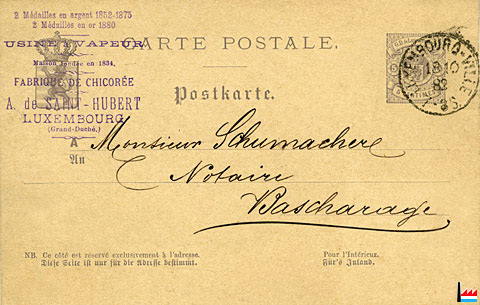 2 Médailles en argent 1852-1875
2 Médailles en or 1880
USINE A VAPEUR
Maison fondée en 1834.
FABRIQUE DE CHICORÉE
A. de SAINT-HUBERT
LUXEMBOURG
(Grand-Duché.)
CARTE POSTALE.
Postkarte.
LUXEMBOURG-VILLE
18 10
83
A
An
Monsieur Schumacher
Notaire
Bascharage
NB. Ce côté est réservé exclusivement à l'adresse.
Diese Seite ist nur für die Adresse bestimmt.
Pour l'Intérieur.
Für's Inland.